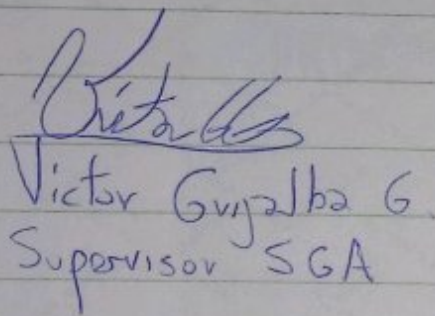 Victor Grijalba G.
Supervisor SGA